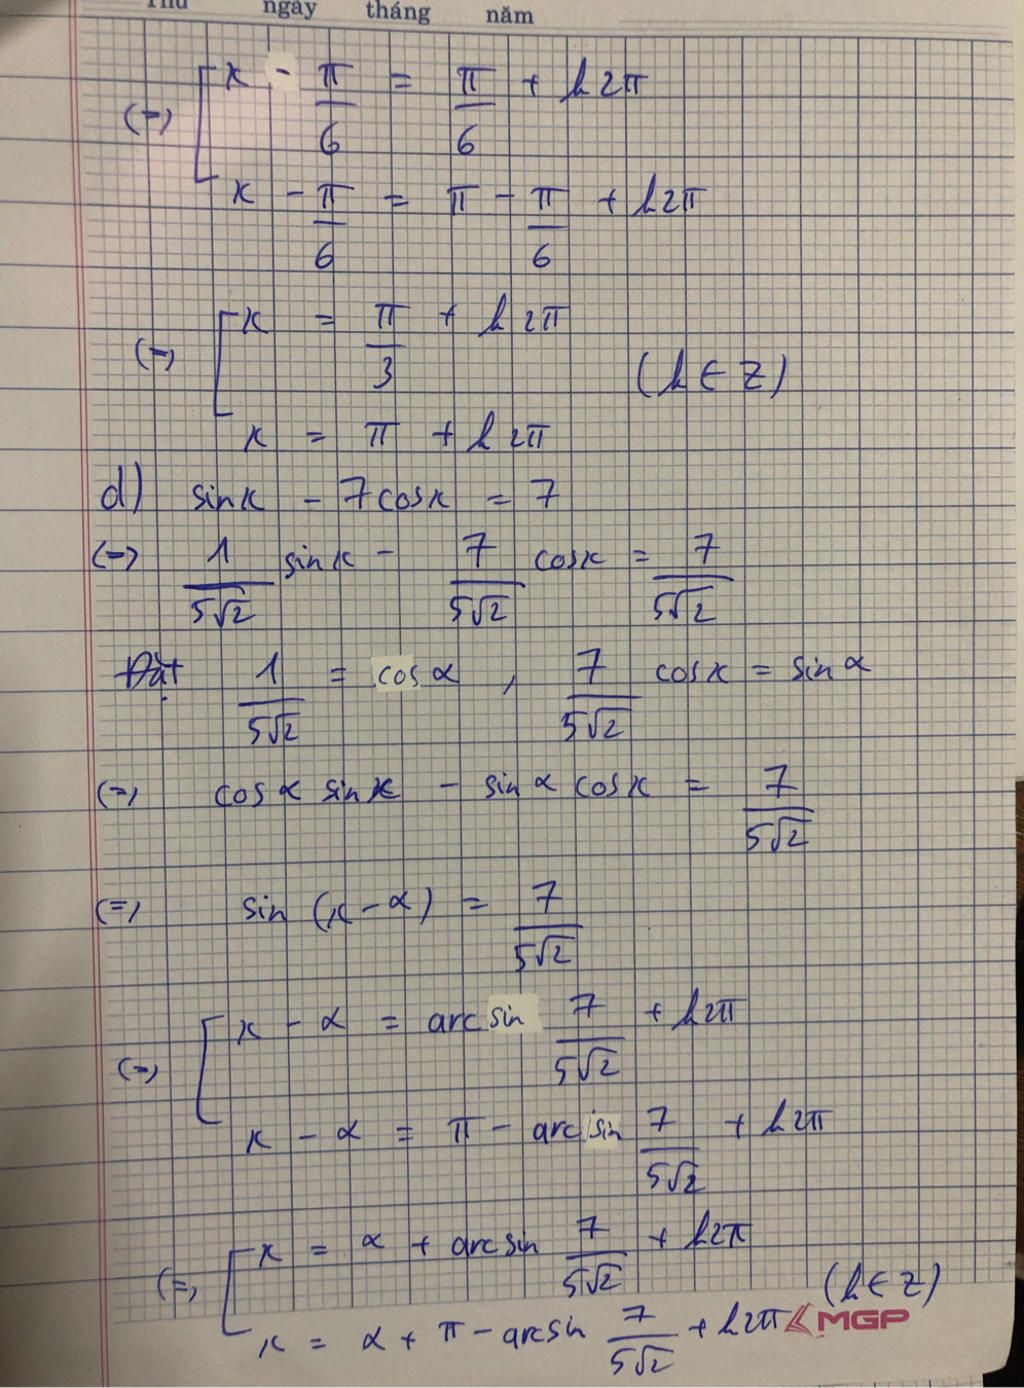 Thứ ngày tháng năm
(=) [ x - π/6 = π/6 + k2π
x - π/6 = π - π/6 + k2π
(=) [ x = π/3 + k2π
(k ∈ Z)
x = π + k2π
d) sinx - 7cosx = 7
(=) 1/5√2 sinx - 7/5√2 cosx = 7/5√2
Đặt 1/5√2 = cosα , 7/5√2 cosx = sinα
(=) cosα sinx - sinα cosx = 7/5√2
(=) sin (x - α) = 7/5√2
(=) [ x - α = arcsin 7/5√2 + k2π
x - α = π - arcsin 7/5√2 + k2π
(=) [ x = α + arcsin 7/5√2 + k2π
(k ∈ Z)
x = α + π - arcsin 7/5√2 + k2π
MGP